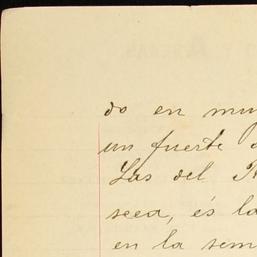 do en mu
un fuerte
Las del
seea, és la
en la sem